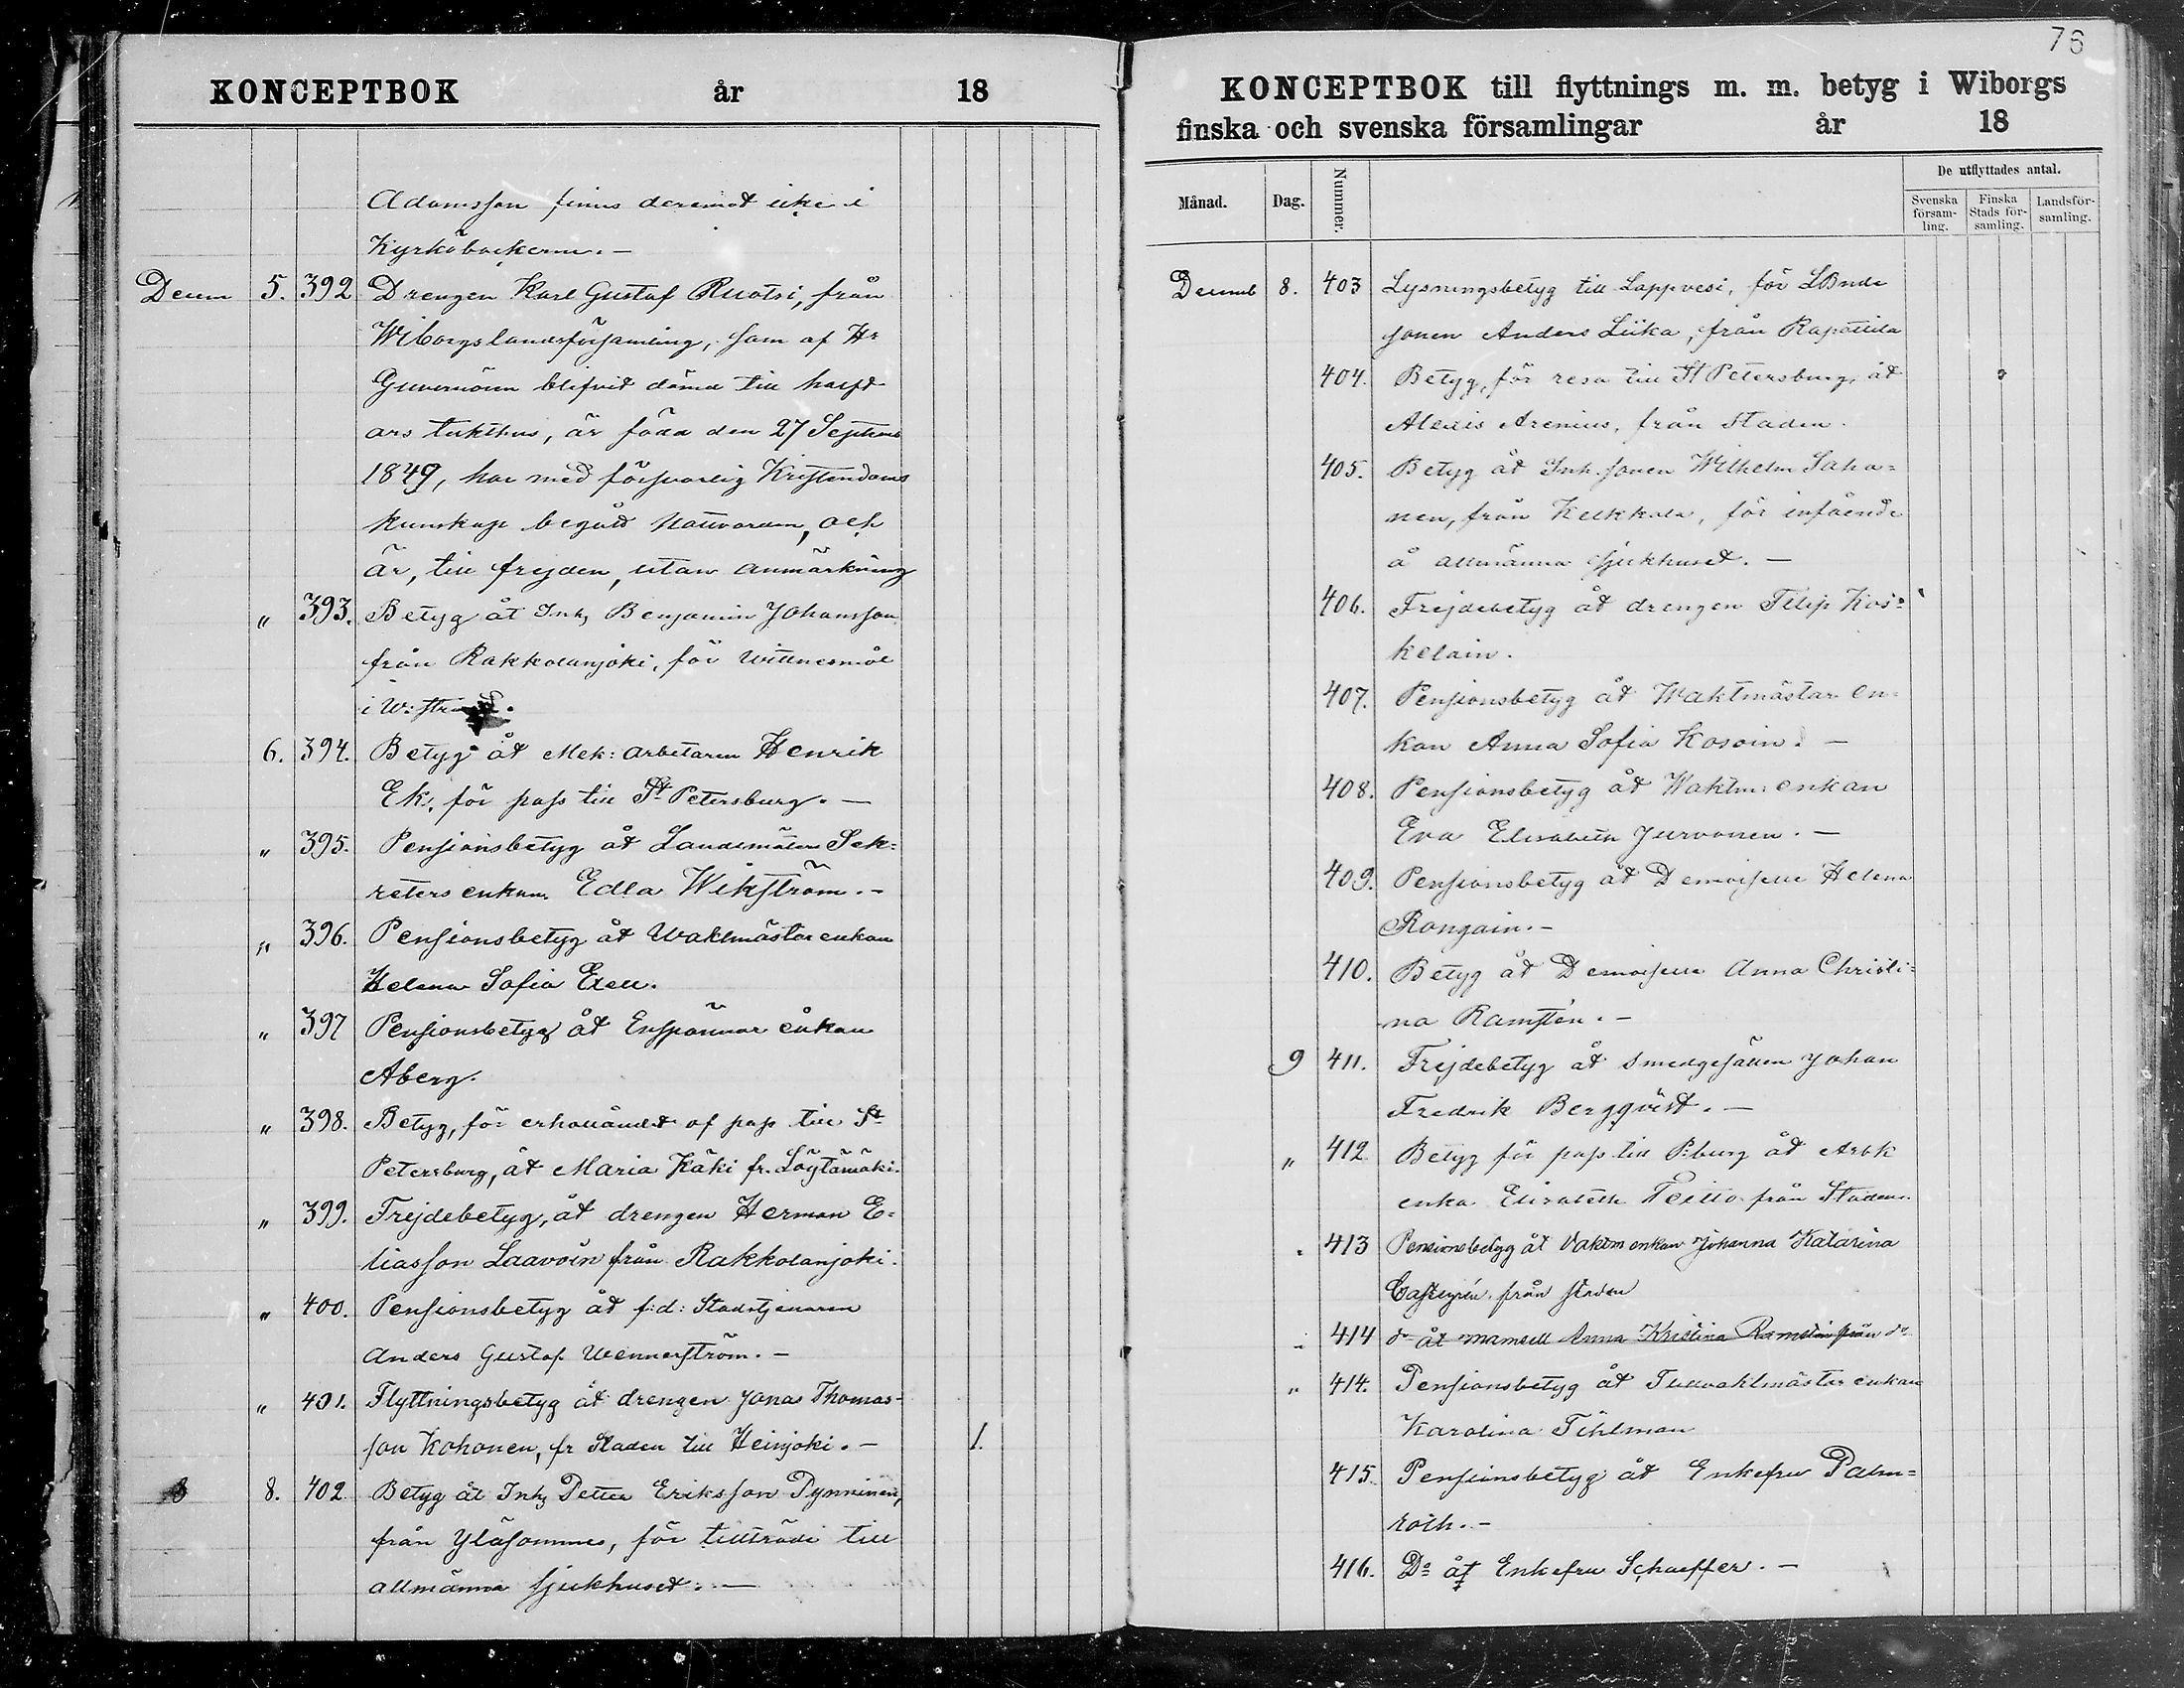 KONCEPTBOK år 18
Adamsson finns deremot icke i
Kyrkoböckerne. —
Decem 5. 392 Drengen Karl Gustaf Ruotsi, från
Wiborgs landsförsamling, som af Hr
Guvernören blifvit dömd till halft
års tukthus, är född den 27 Septemb
1849, har med försvarlig Kristendoms
kunskap begått Nattvarden, och
är, till frejden, utan anmärkning
" 393. Betyg åt Inh. Benjamin Johansson
från Rakkolanjoki, för wittnesmål
i
6. 394. Betyg åt Mek: arbetaren Henrik
Ek, för pass till St Petersburg. —
" 395. Pensionsbetyg åt Landtmätare Sek-
reters enkan Edla Wikström. -
" 396. Pensionsbetyg åt Waktmästar enkan
Helena Sofia
" 397 Pensionsbetyg åt Enspännar enkan
Åberg.
" 398. Betyg, för erhållandet af pass till St
Petersburg, åt Maria Käki fr. Löytämäki.
" 399. Frejdebetyg, åt drengen Herman E-
liasson Laavoin från Rakkolanjoki.
" 400. Pensionsbetyg åt f:d: Stadstjenaren
Anders Gustaf Wennerström. -
" 401. Flyttningsbetyg åt drengen Jonas Thomas-
son Kohonen, fr Staden till Heinjoki. - 1.
8. 402 Betyg åt Inh. Petter Eriksson Pynninen,
från Yläsommes, för tillträde till
allmänna sjukhuset. —
76
KONCEPTBOK till flyttnings m. m. betyg i Wiborgs
finska och svenska församlingar år 18
Månad. Dag. Nummer. De utflyttades antal.
Svenska försam-ling. Finska Stads för-samling. Landsför-samling.
Decemb 8. 403 Lysningsbetyg till Lappvesi, för LBnde
sonen Anders Liika, från Rapattila
404. Betyg, för resa till St Petersburg, åt
Alexis Arenius, från Staden.
405. Betyg åt Inh. sonen Wilhelm Saha-
nen, från Kelkkala, för infående
å allmänna sjukhuset. —
406. Frejdebetyg åt drengen Filip Kos-
kelain.
407. Pensionsbetyg åt Waktmästar en-
kan Anna Sofia Kosoin. —
408. Pensionsbetyg åt Waktm: enkan
Eva Elisabeth Jurvonen. —
409. Pensionsbetyg åt Demoiselle Helena
Rongain. -
410. Betyg åt Demoiselle Anna Christi-
na Ramstén. -
9 411. Frejdebetyg åt Smedgesällen Johan
Fredrik Bergqvist. —
" 412 Betyg för pass till P:burg åt Arbk
enka Elisabeth Peitto från Staden.
" 413 Pensionsbetyg åt Vaktm enkan Johanna Katarina
Castegrén från staden
" 414 do åt mamsell Anna Kristina Ramstén från do
" 414. Pensionsbetyg åt Tullvaktmästar enkan
Karolina Tihlman
415. Pensionsbetyg åt Enkefru Palm-
roth. -
416. Do åt Enkefru Schaeffer. —